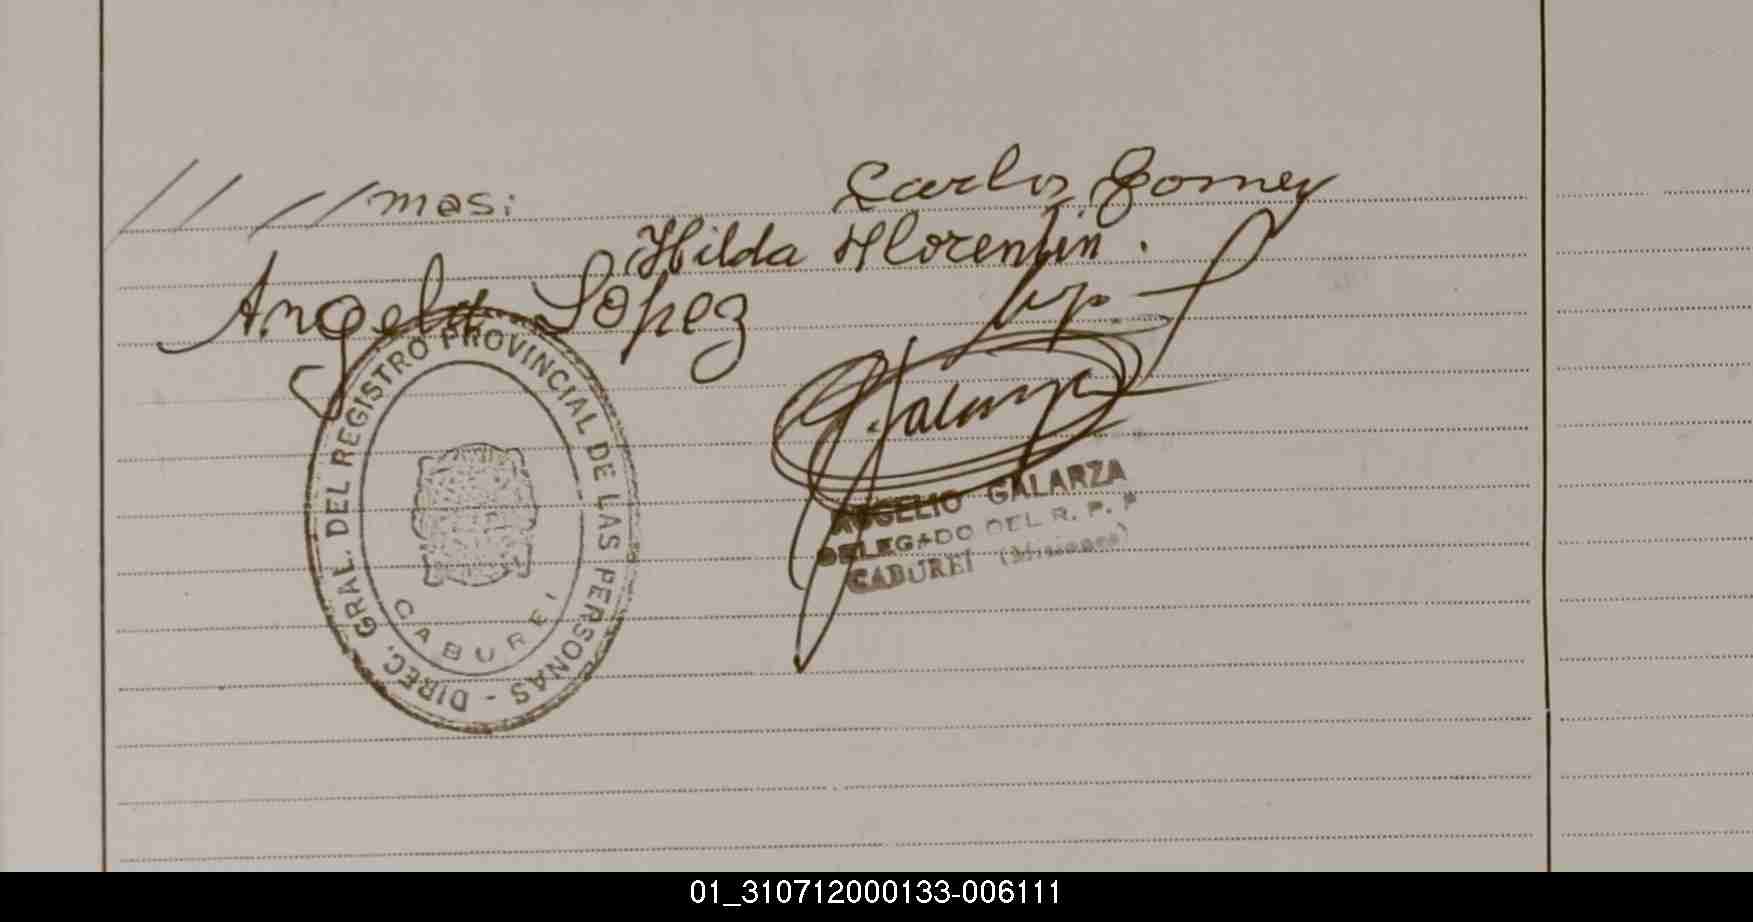 ////mas:
Carlos Gomez
Hilda Florentin.
Angela Lopez
G. Galarza
DIREC. GRAL. DEL REGISTRO PROVINCIAL DE LAS PERSONAS -
CABUREI
GALARZA
DELEGADO DEL R. P. P
CABUREI (Misiones)
01_310712000133-006111